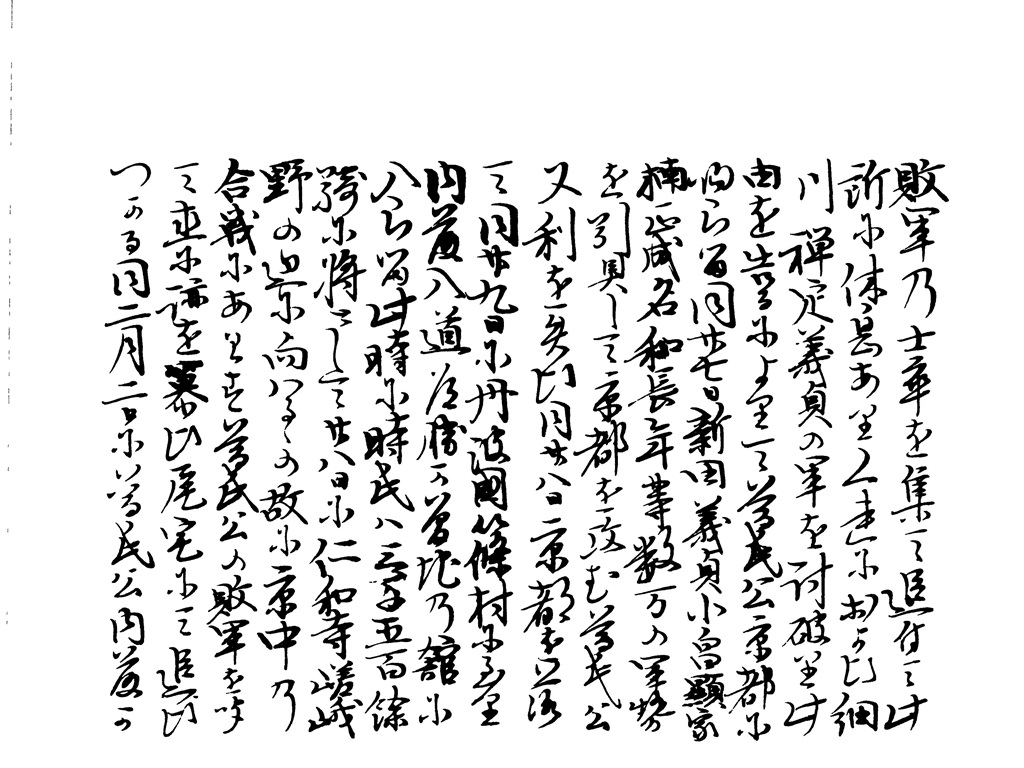 敗軍乃士卒を集て追付て此
所に休息あり又是におよひ細
川禅定義貞の軍を討破り此
由を告るによりて尊氏公京都に
帰らる同廿七日新田義貞小昌顕家
楠正成名和長年等数万の軍勢
を引具して京都を攻む尊氏公
又利を失ひ同廿八日京都を退
て同廿九日に丹波国篠村に至り
内藤入道道勝か曽地乃館に
入らる此時に時氏ハ三千五百余
騎に将として廿八日に仁和寺嵯峨
野の辺に向ハるゝ故に京中乃
合戦にあらす尊氏公の敗軍を聞
て直に跡を慕ひ尾宅にて追ひ
つかる同二月二日に尊氏公内藤か